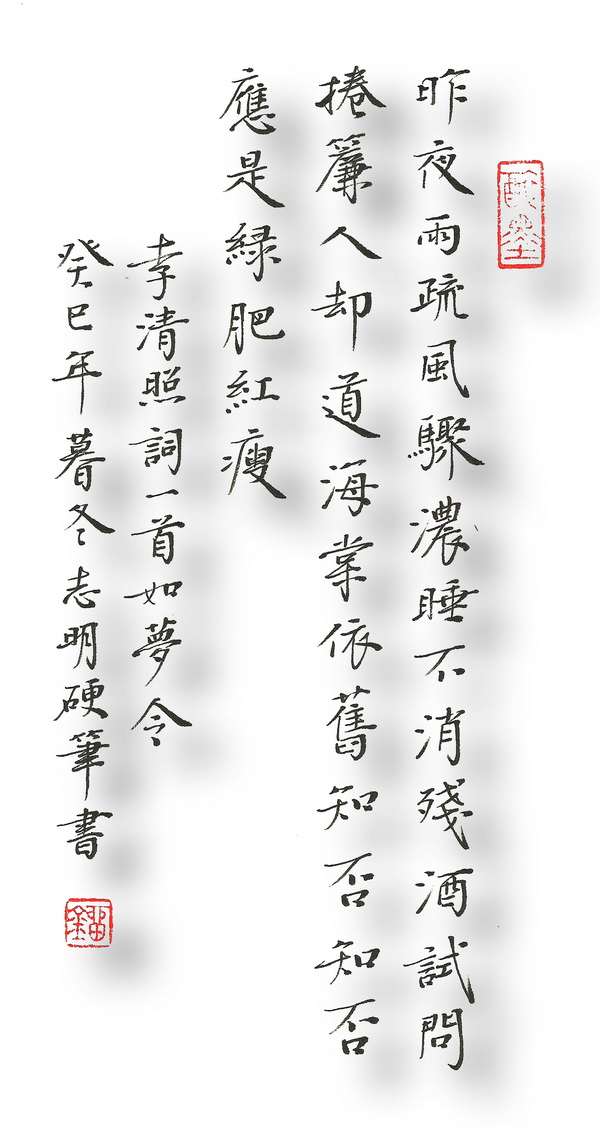 昨夜雨疏風驟濃睡不消殘酒試問
捲簾人却道海棠依舊知否知否
應是緑肥紅瘦
李清照詞一首如夢令
癸巳年暮冬志明硬筆書